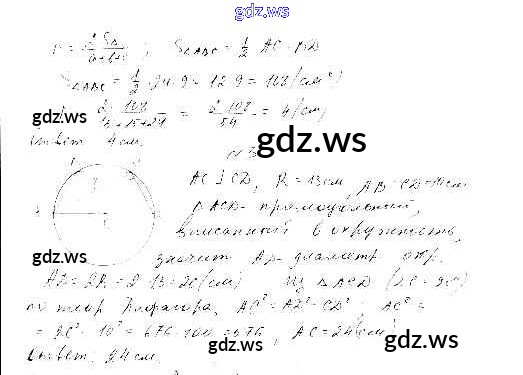 gdz.ws
r = 2 S△ / a+b+c ; S△ABC = 1/2 AC · BD
S△ABC = 1/2 · 24 · 9 = 12 · 9 = 108 (см²)
2 · 108 / 15+15+24 = 2 · 108 / 54 = 4 (см)
Ответ 4 см.
AC ⊥ CD, R = 13 см, AB = CD = 10 см
△ ACD - прямоугольный,
вписанный в окружность,
значит AD - диаметр окр.
AD = 2R = 2 · 13 = 26 (см) Из △ ACD
по теор Пифагора, AC² = AD² - CD² ; AC² =
= 26² - 10² = 676 - 100 = 576 , AC = 24 (см)
Ответ 24 см.
gdz.ws
gdz.ws
gdz.ws
gdz.ws
gdz.ws